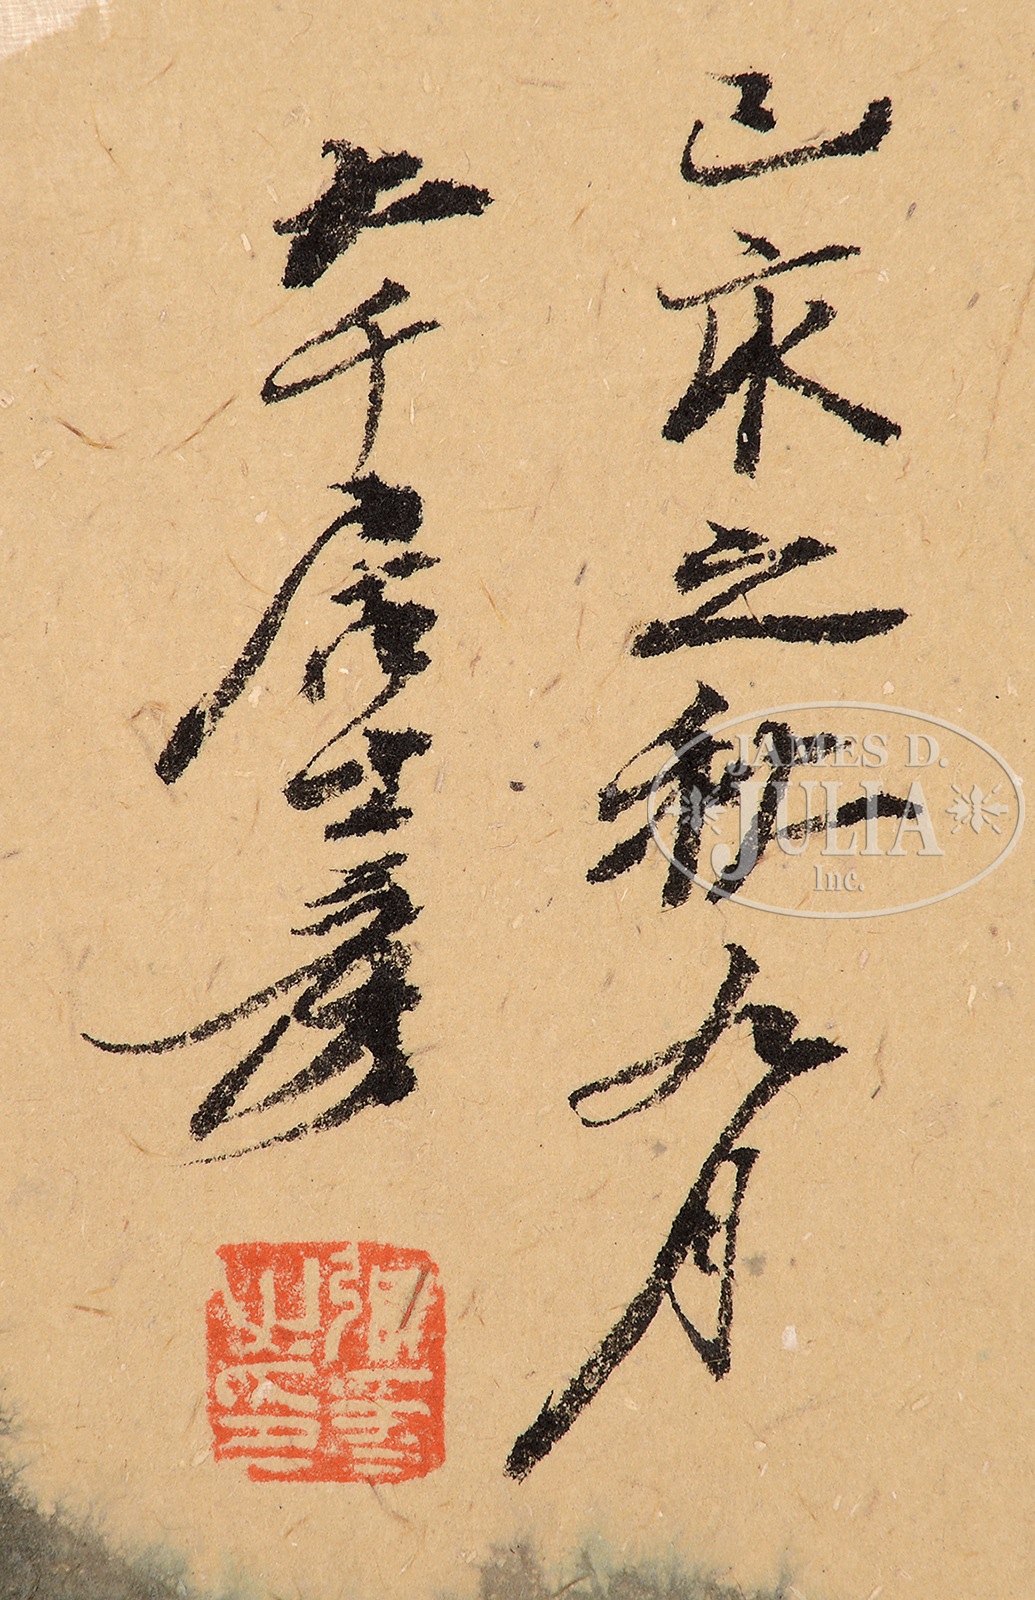 己亥之秋九月
大千居士爰
張爰之印
JAMES D.
JULIA
Inc.